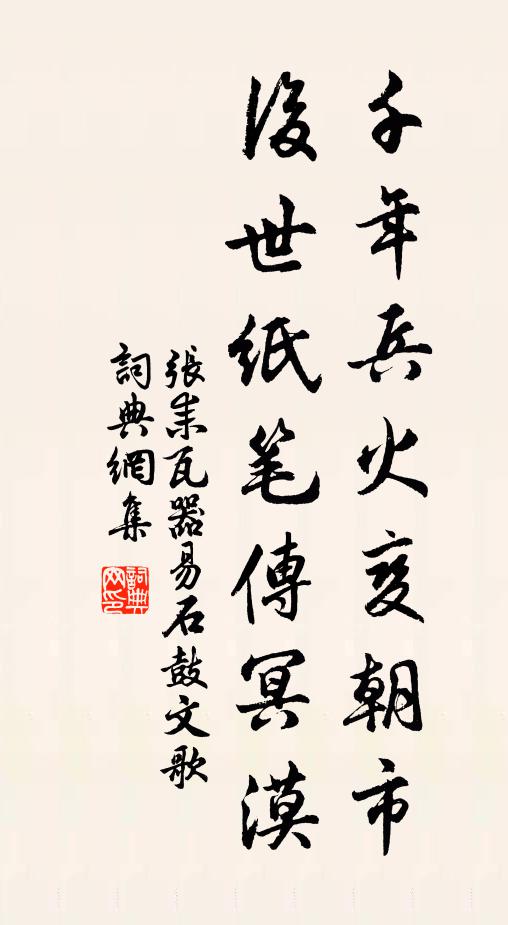 千年兵火变朝市
後世紙笔傳冥漠
張耒瓦器易石鼓文歌
詞典網集
詞典
网印